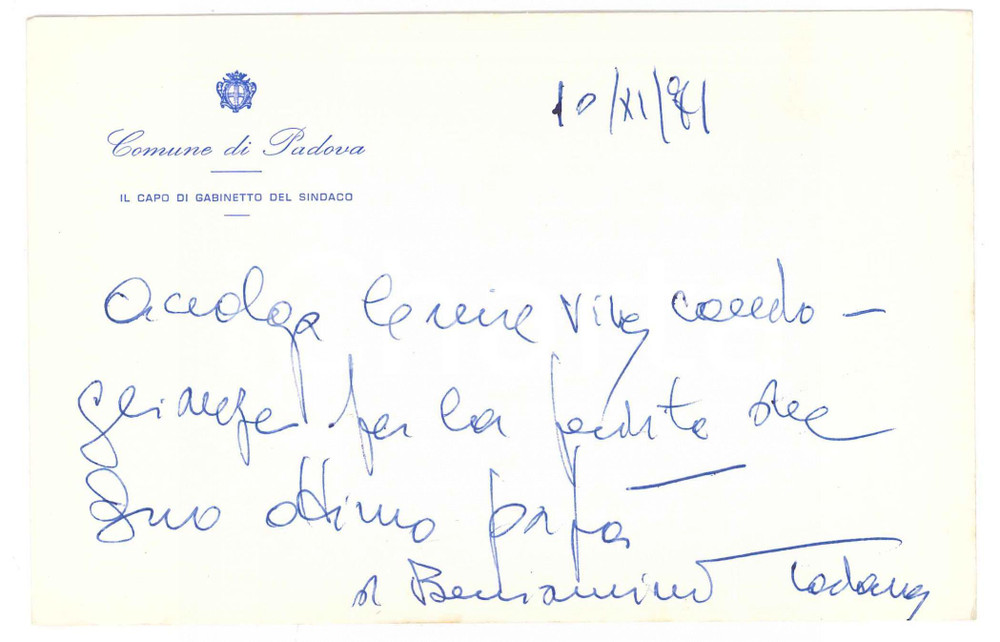 10/XI/81
Comune di Padova
IL CAPO DI GABINETTO DEL SINDACO
Accolga le mie vive condo-
glianze per la perdita del
Suo ottimo papà
Beniamino